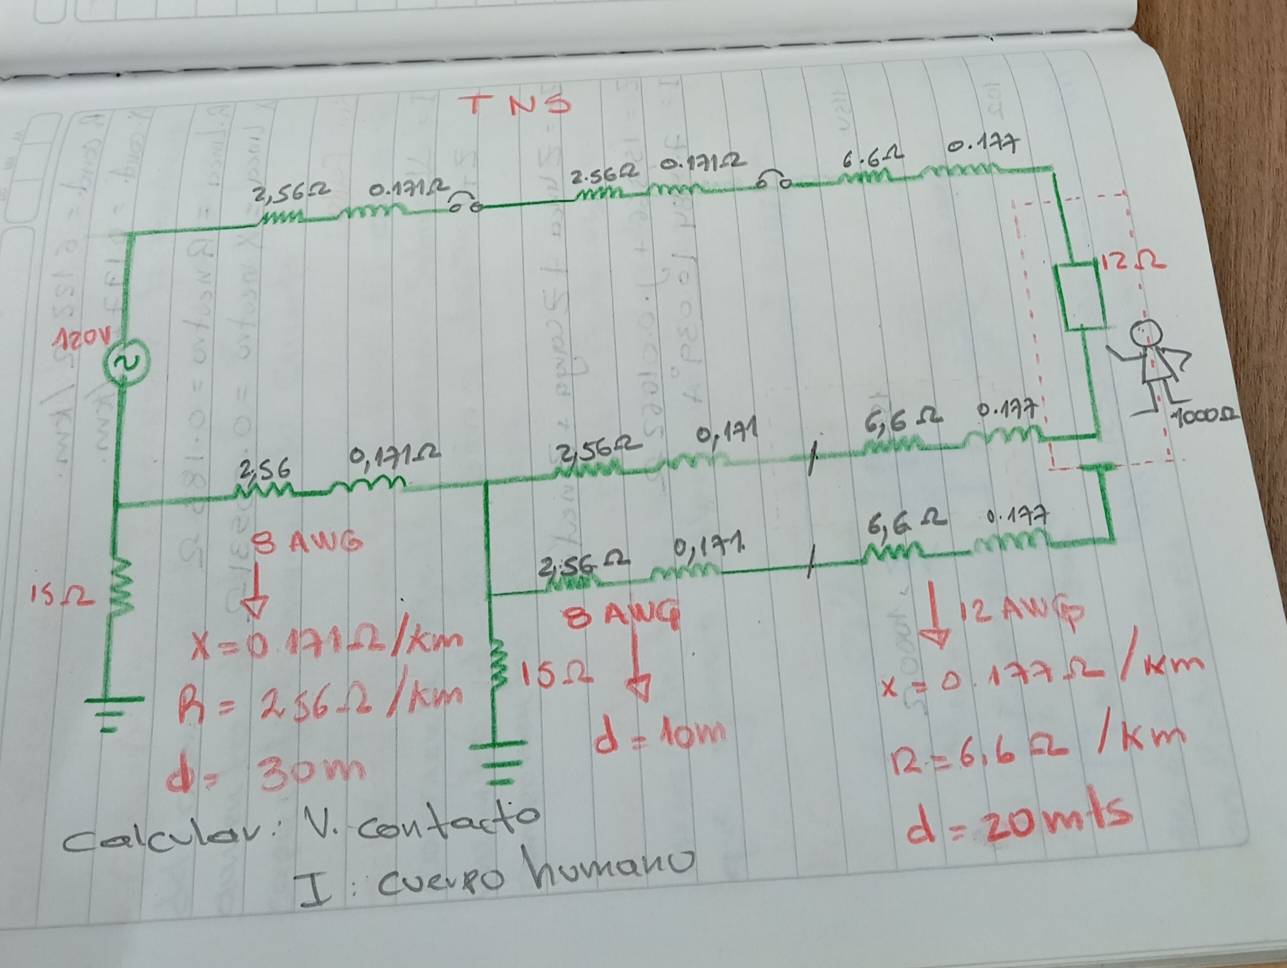 TNS
2,56Ω 0.171Ω 2.56Ω 0.171Ω 6.6Ω 0.177
12Ω
120V
1000Ω
2,56 0,171Ω 2,56Ω 0,171 6,6Ω 0.177
8 AWG
2,56Ω 0,171 6,6Ω 0.177
15Ω
X=0.171Ω/km
R= 2,56Ω/km
d= 30m
8 AWG
15Ω
d=10m
12 AWG
x=0.177Ω/km
R=6,6Ω/km
d=20mts
calcular: V. contacto
I: cuerpo humano